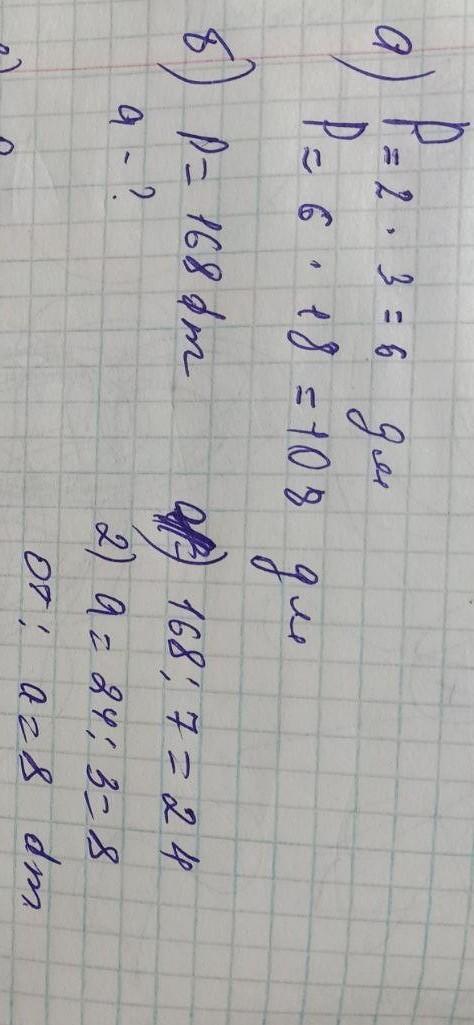 а) P = 2 · 3 = 6 дм
P = 6 · 18 = 108 дм
б) P = 168 dm
a - ?
1) 168 : 7 = 24
2) a = 24 : 3 = 8
от: a = 8 dm